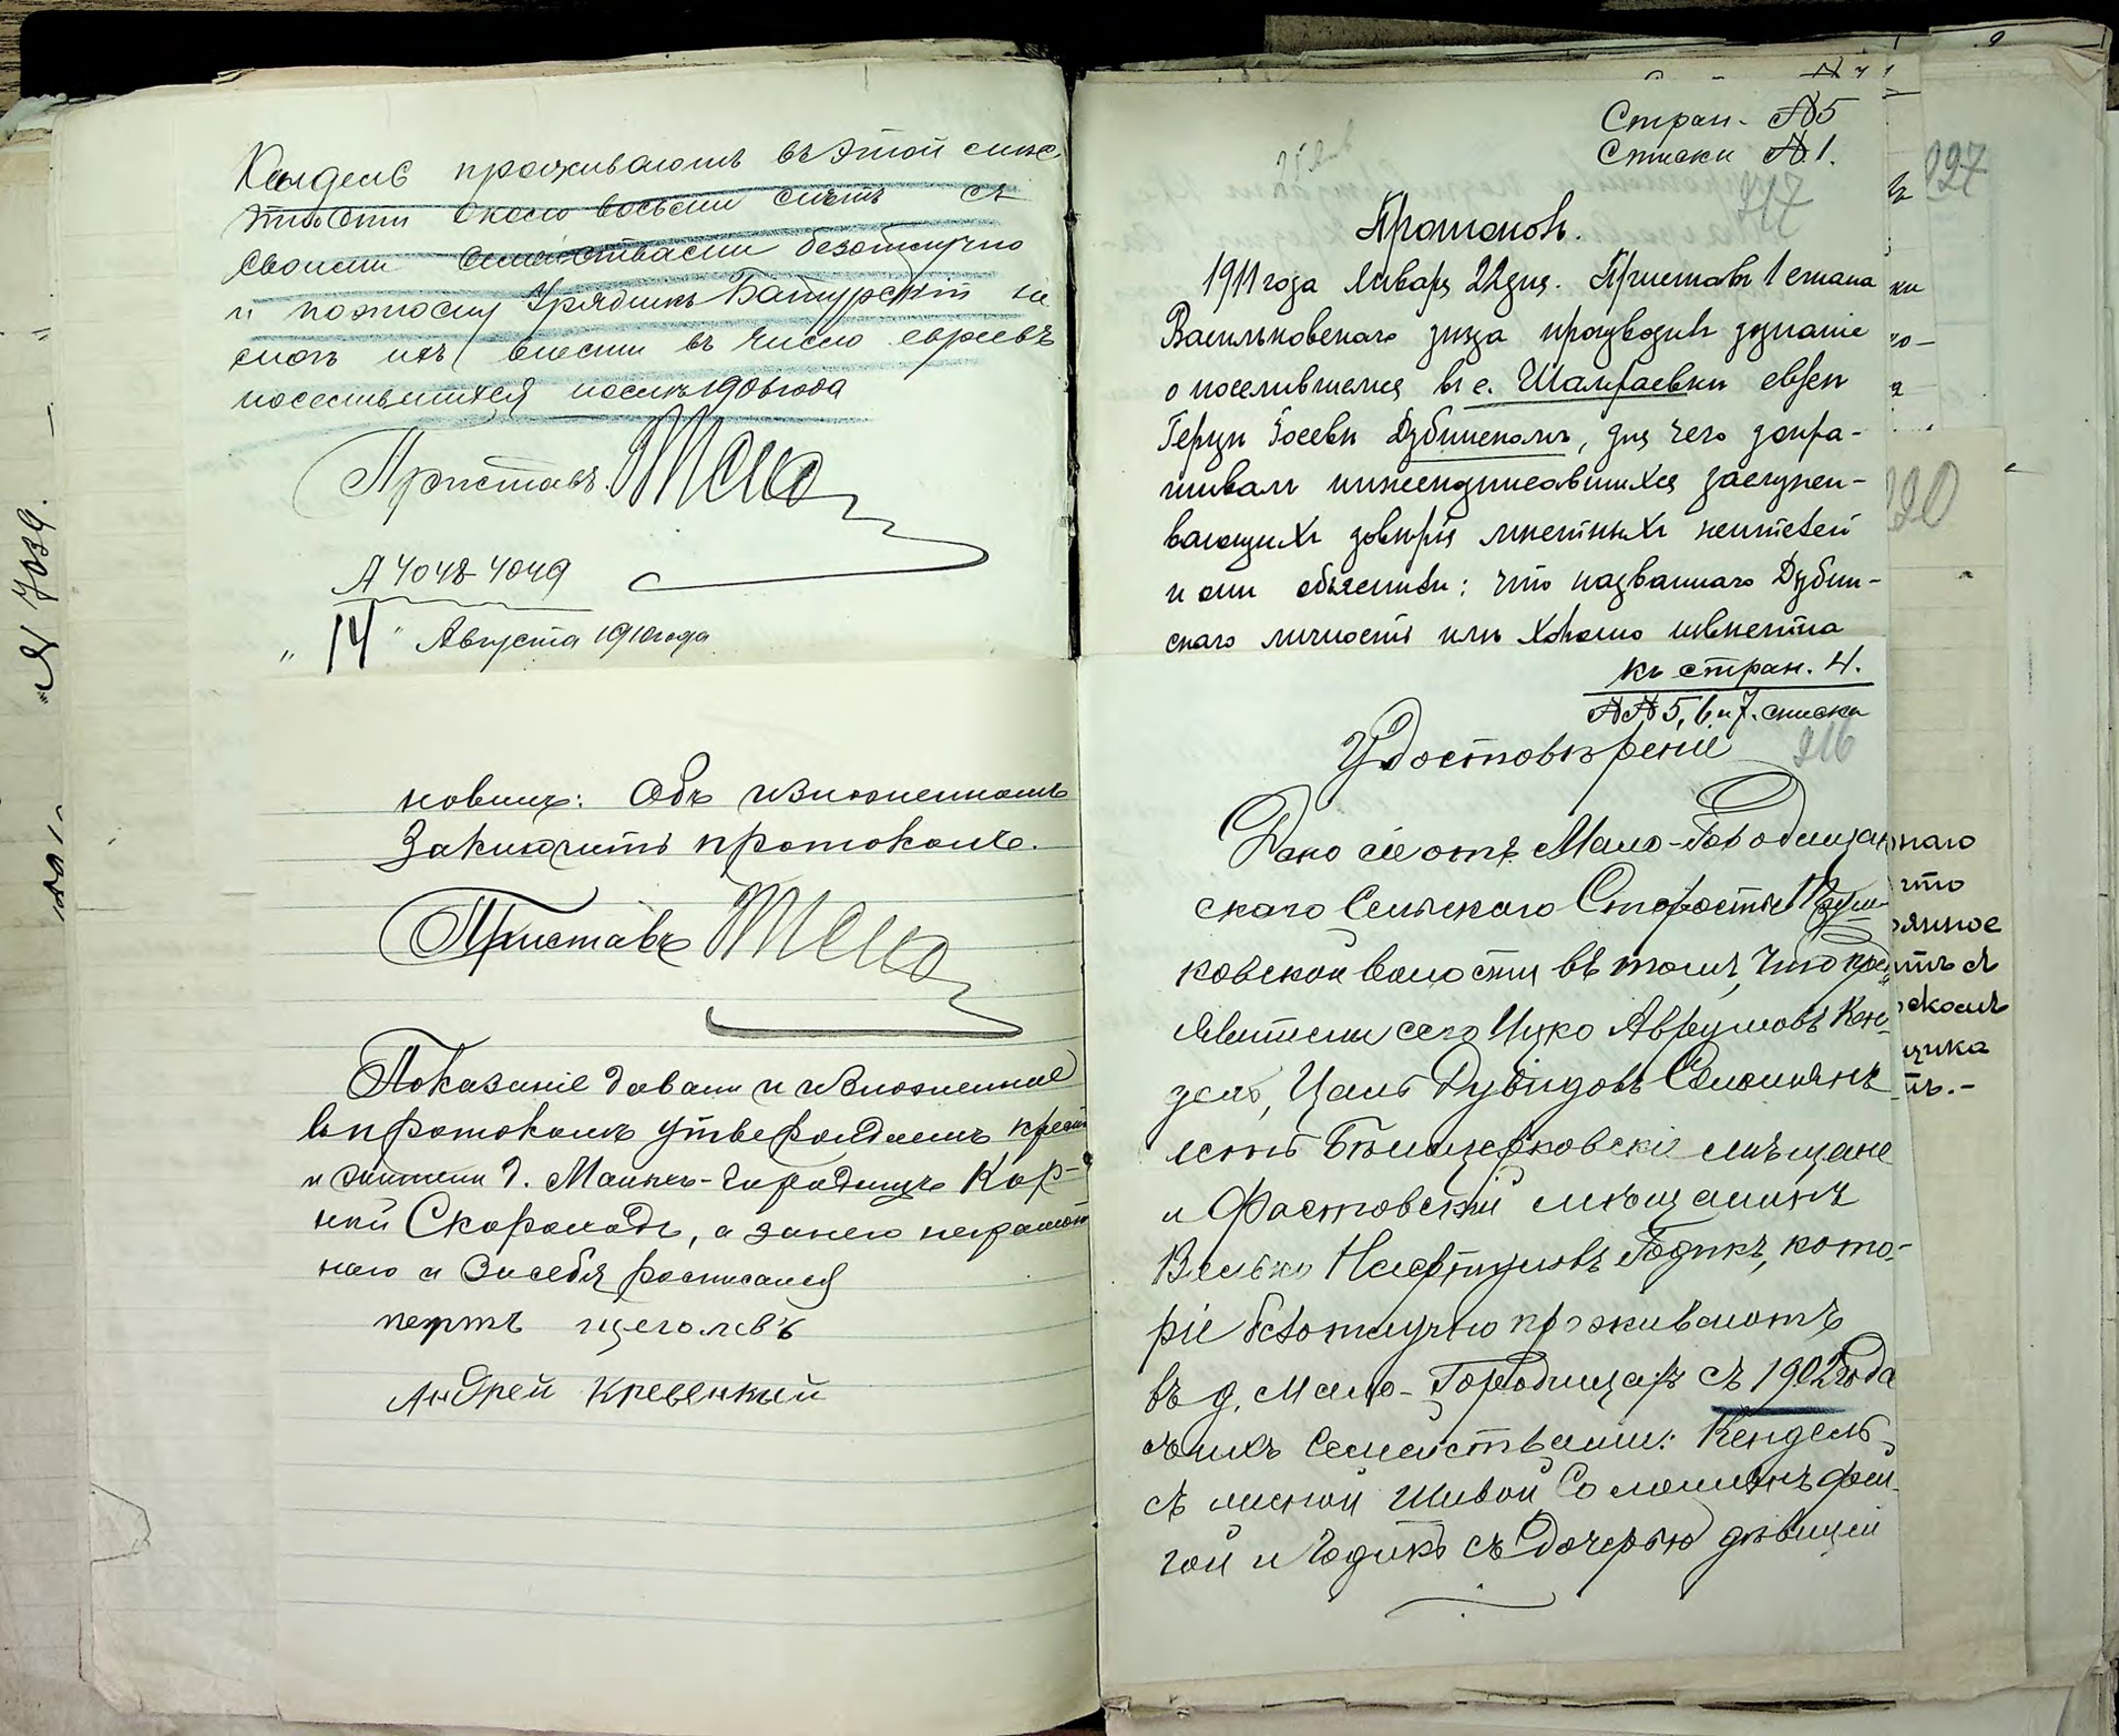 Кендель проживаютъ въ этой
около восьми лѣтъ съ
своими семействами безотлучно
и поэтому Урядникъ Батурскій не
могъ ихъ внести въ число евреевъ
поселившихся послѣ 1906 года
Приставъ
№ 4048-4049
"14" Августа 1910 года
№ 4039.
новицъ: Объ изложенномъ
Заключить протоколъ.
Приставъ
Показаніе давали и изложенное
въ протоколѣ утверждаемъ
и жители д. Малыхъ-Городищъ Кор-
ній Скороходъ, а за него неграмот
наго и за себя росписался
петръ щеголевъ
Андрей Кревенкый
Стран. № 5
Списки № 1.
217
Протоколъ.
1911 года Января 22 дня. Приставъ 1 стана
Васильковскаго уѣзда производилъ дознаніе
о поселившемся въ с. Шамраевкѣ евреѣ
Герцкѣ Іосевѣ Дубинскомъ, для чего допра-
шивалъ нижеподписавшихся заслужи-
вающихъ довѣрія мѣстныхъ жителей
и они объяснили: что названнаго Дубин-
скаго личность имъ хорошо извѣстна
къ стран. 4.
№№ 5, 6 и 7. списка
216
Удостовѣреніе
Дано сіе отъ Мало-Городищан
скаго Сельскаго Старосты
ковской волости въ томъ, что пред
явители сего Ицко Аврумовъ Кен-
дель, Цаль Дувидовъ Соломянъ
Бѣлоцерковскіе мѣщане
и Фастовскій мѣщанинъ
Волько Нафтуловъ Годикъ, кото-
ріе безотлучно проживаютъ
въ д. Мало-Городищахъ съ 1902 года
съ ихъ Семействами: Кендель
съ женой Шивой Соломянъ фей-
гой и Годикъ съ Дочерью дѣвицей
227
220
наго
что
оянное
скомъ
щика